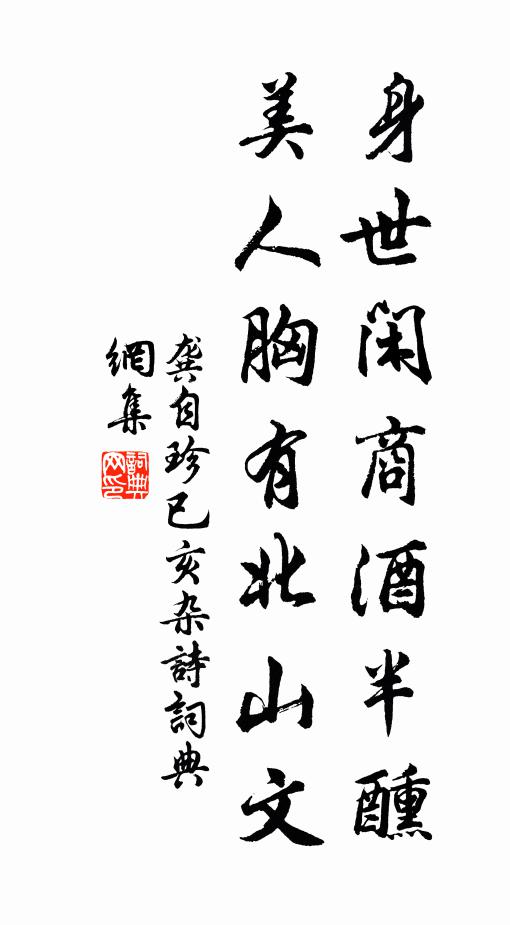 身世閑商酒半醺
美人胸有北山文
龔自珍已亥杂詩詞典
網集
詞典
网印